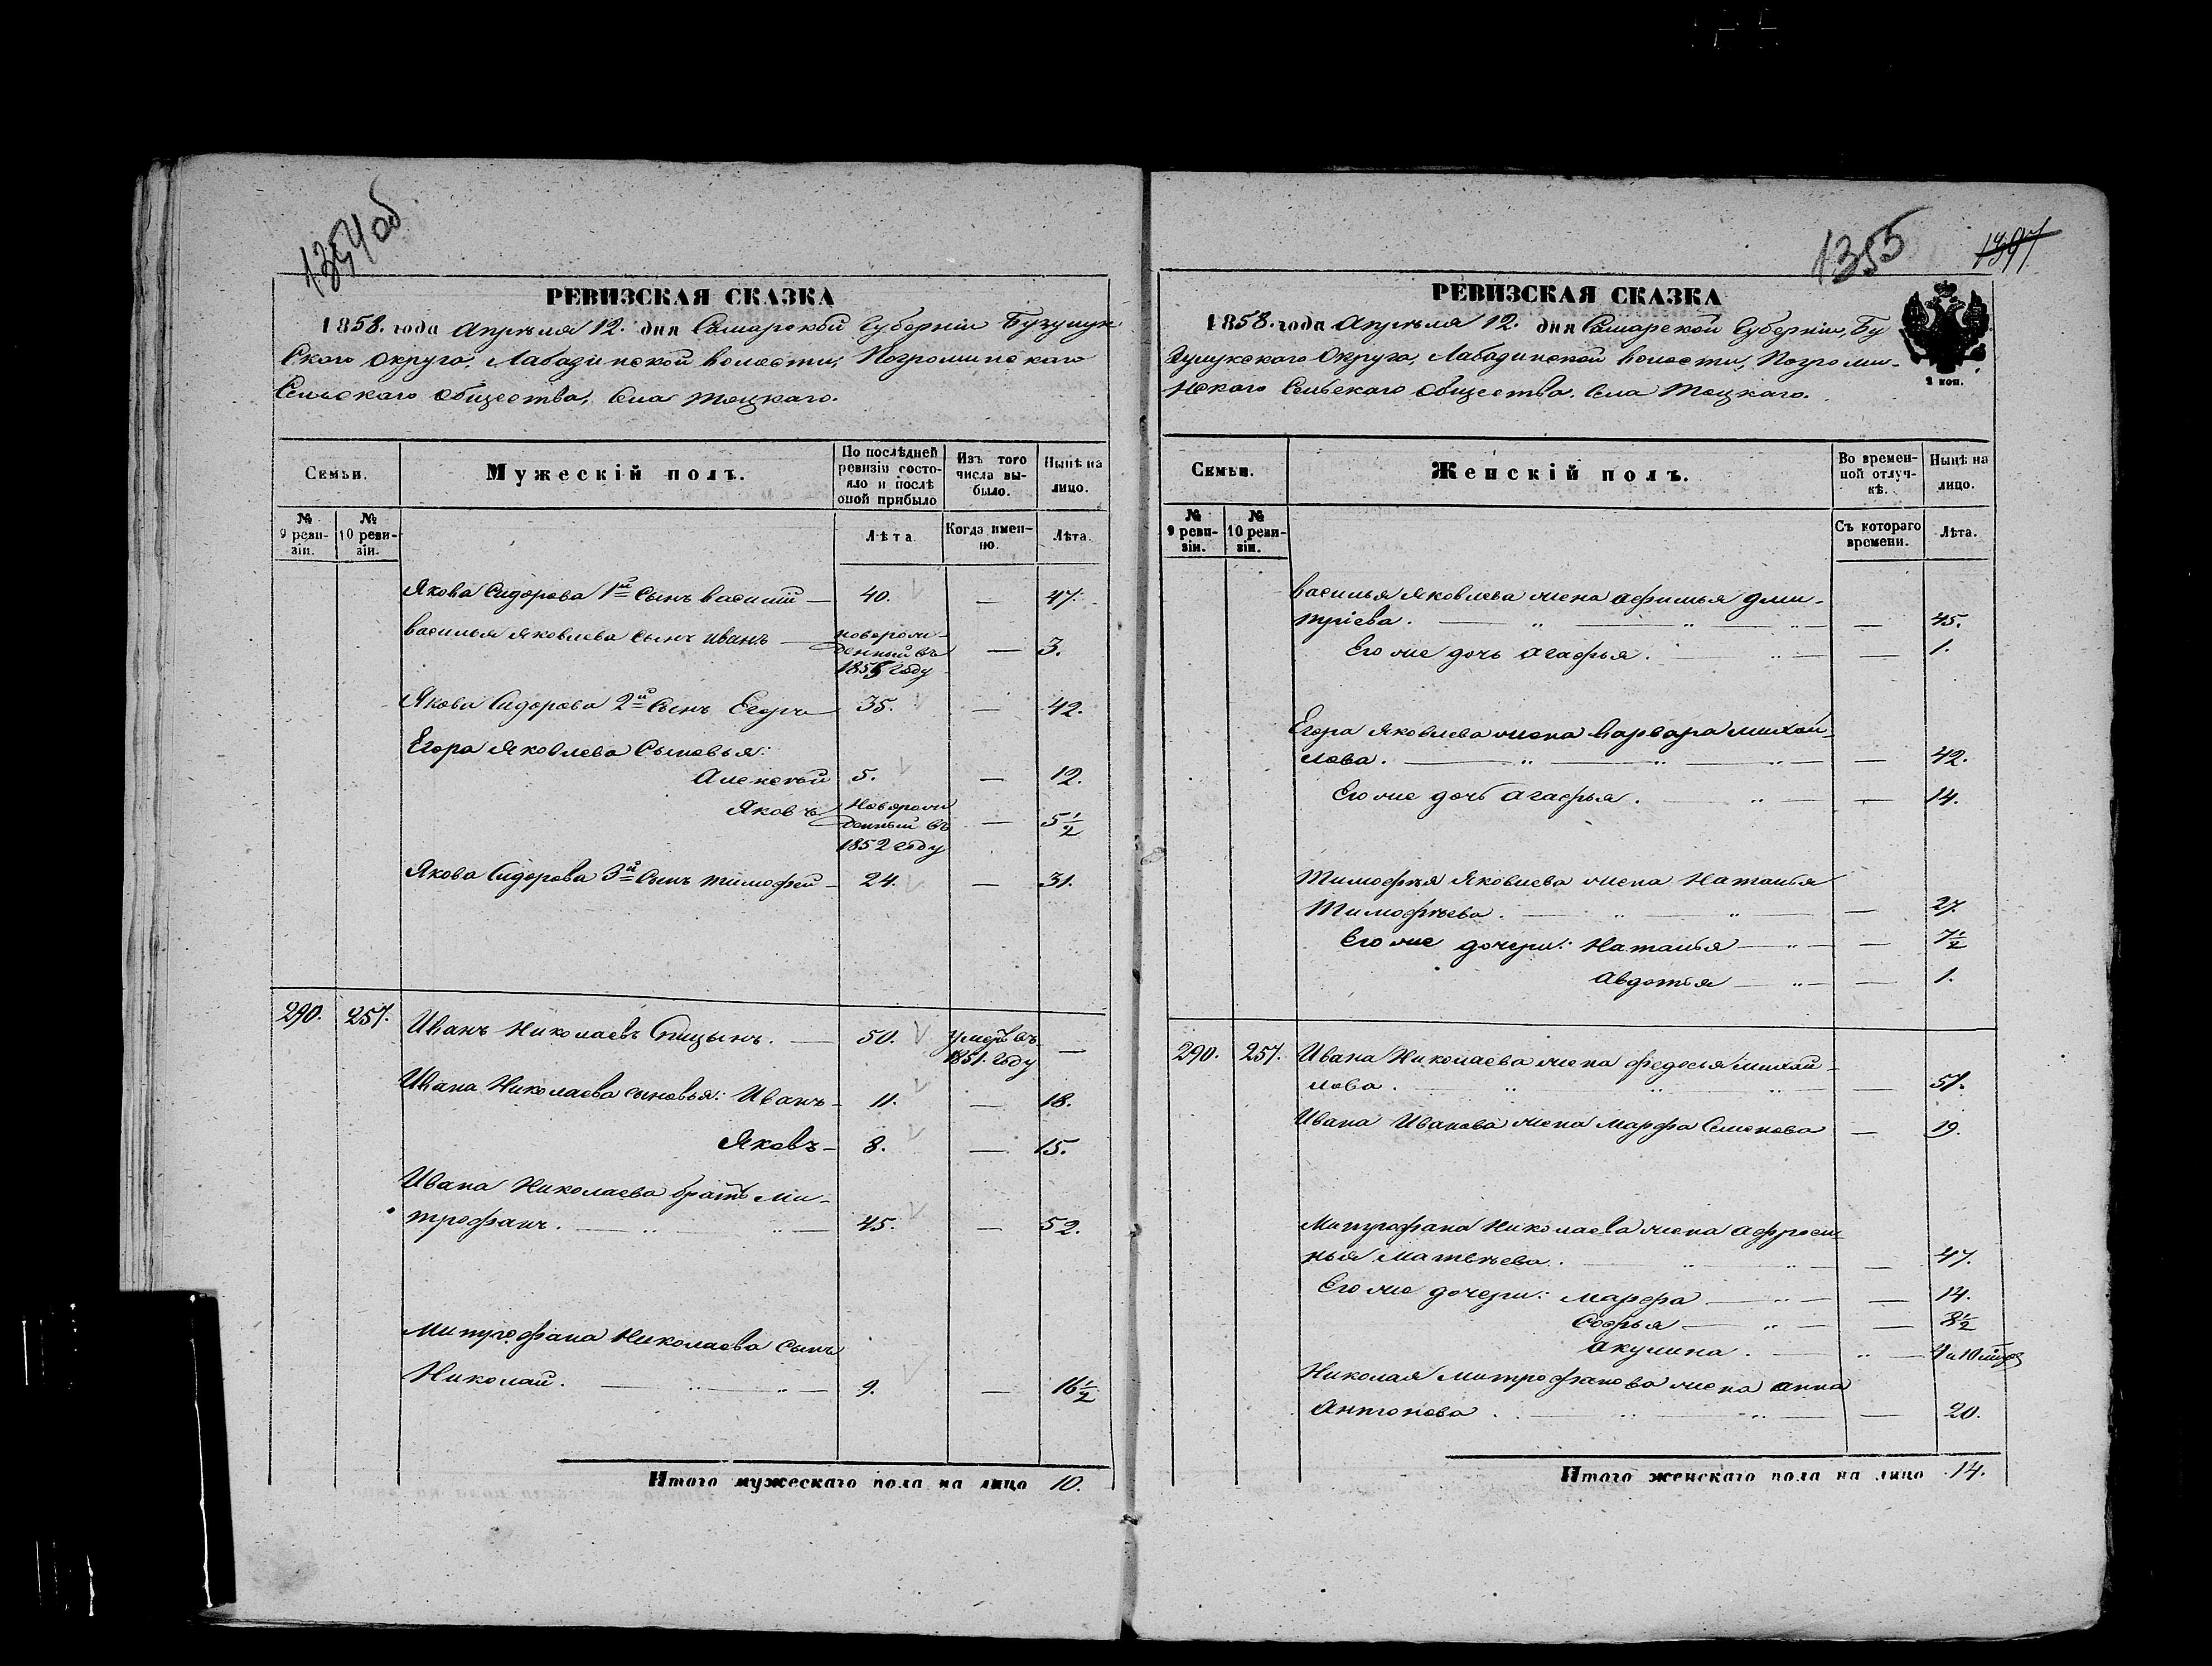 1354 об
РЕВИЗСКАЯ СКАЗКА
1858. года Апрѣля 12. дня Самарской Губерніи Бузулук
Скаго Округа, Лабазинской волости, Погроминскаго
Сельскаго Общества, Села Тоцкаго.
Семьи.
Мужескій полъ.
По послѣдней ревизіи состояло и послѣ оной прибыло
Изъ того числа выбыло.
Нынѣ на лицо.
№ 9 ревизіи.
№ 10 ревизіи.
Лѣта
Когда именно.
Лѣта.
Якова Сидорова 1й Сынъ Василій — 40. — 47.
Василья Яковлева сынъ Иванъ — новорожденный въ 1855 году — 3.
Якова Сидорова 2й Сынъ Егоръ 35. — 42.
Егора Яковлева Сыновья:
Алексѣй 5. — 12.
Яковъ Новорожденный въ 1852 году — 5½
Якова Сидорова 3й Сынъ Тимофей — 24. — 31.
290. 257. Иванъ Николаевъ Спицынъ. — 50. умеръ въ 1851. году —
Ивана Николаева сыновья: Иванъ — 11. — 18.
Яковъ — 8. — 15.
Ивана Николаева братъ Ми-
трофанъ. — 45. — 52.
Митрофана Николаева Сынъ
Николай. — 9. — 16½
Итого мужескаго пола на лицо 10.
1355
1397
РЕВИЗСКАЯ СКАЗКА
1858. года Апрѣля 12. дня Самарской Губерніи, Бу
зулукскаго Округа, Лабазинской волости, Погроми-
нскаго Сельскаго Общества. Села Тоцкаго.
2 коп.
Семьи.
Женскій полъ.
Во временной отлучкѣ.
Нынѣ на лицо.
№ 9 ревизіи.
№ 10 ревизіи.
Съ котораго времени.
Лѣта.
Василья Яковлева жена Афимья Дми-
тріева. — 45.
Его же дочь Агафья. — 1.
Егора Яковлева жена Варвара Михай-
лова. — 42.
Его же дочь Агафья. — 14.
Тимофѣя Яковлева жена Наталья
Тимофѣева. — 27.
Его же дочери: Наталья — 7½
Авдотья — 1.
290. 257. Ивана Николаева жена Федосья Михай-
лова. — 57.
Ивана Иванова жена Марфа Семенова — 19.
Митрофана Николаева жена Афроси-
нья Матвѣева. — 47.
Его же дочери: Марфа — 14.
Софья — 8½
Акулина. —
Николая Митрофанова жена Анна
Антонова. — 20.
Итого женскаго пола на лицо 14.